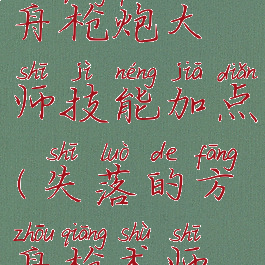 舟枪炮大
shī jì néng jiā diǎn
师技能加点
shī luò de fāng
(失落的方
zhōu qiāng shù shī
舟枪术师